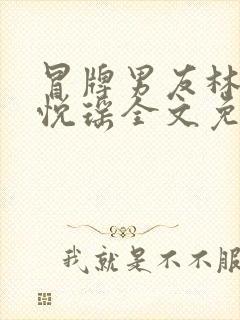 冒牌男友林
悦瑶全文免
我就是不不服